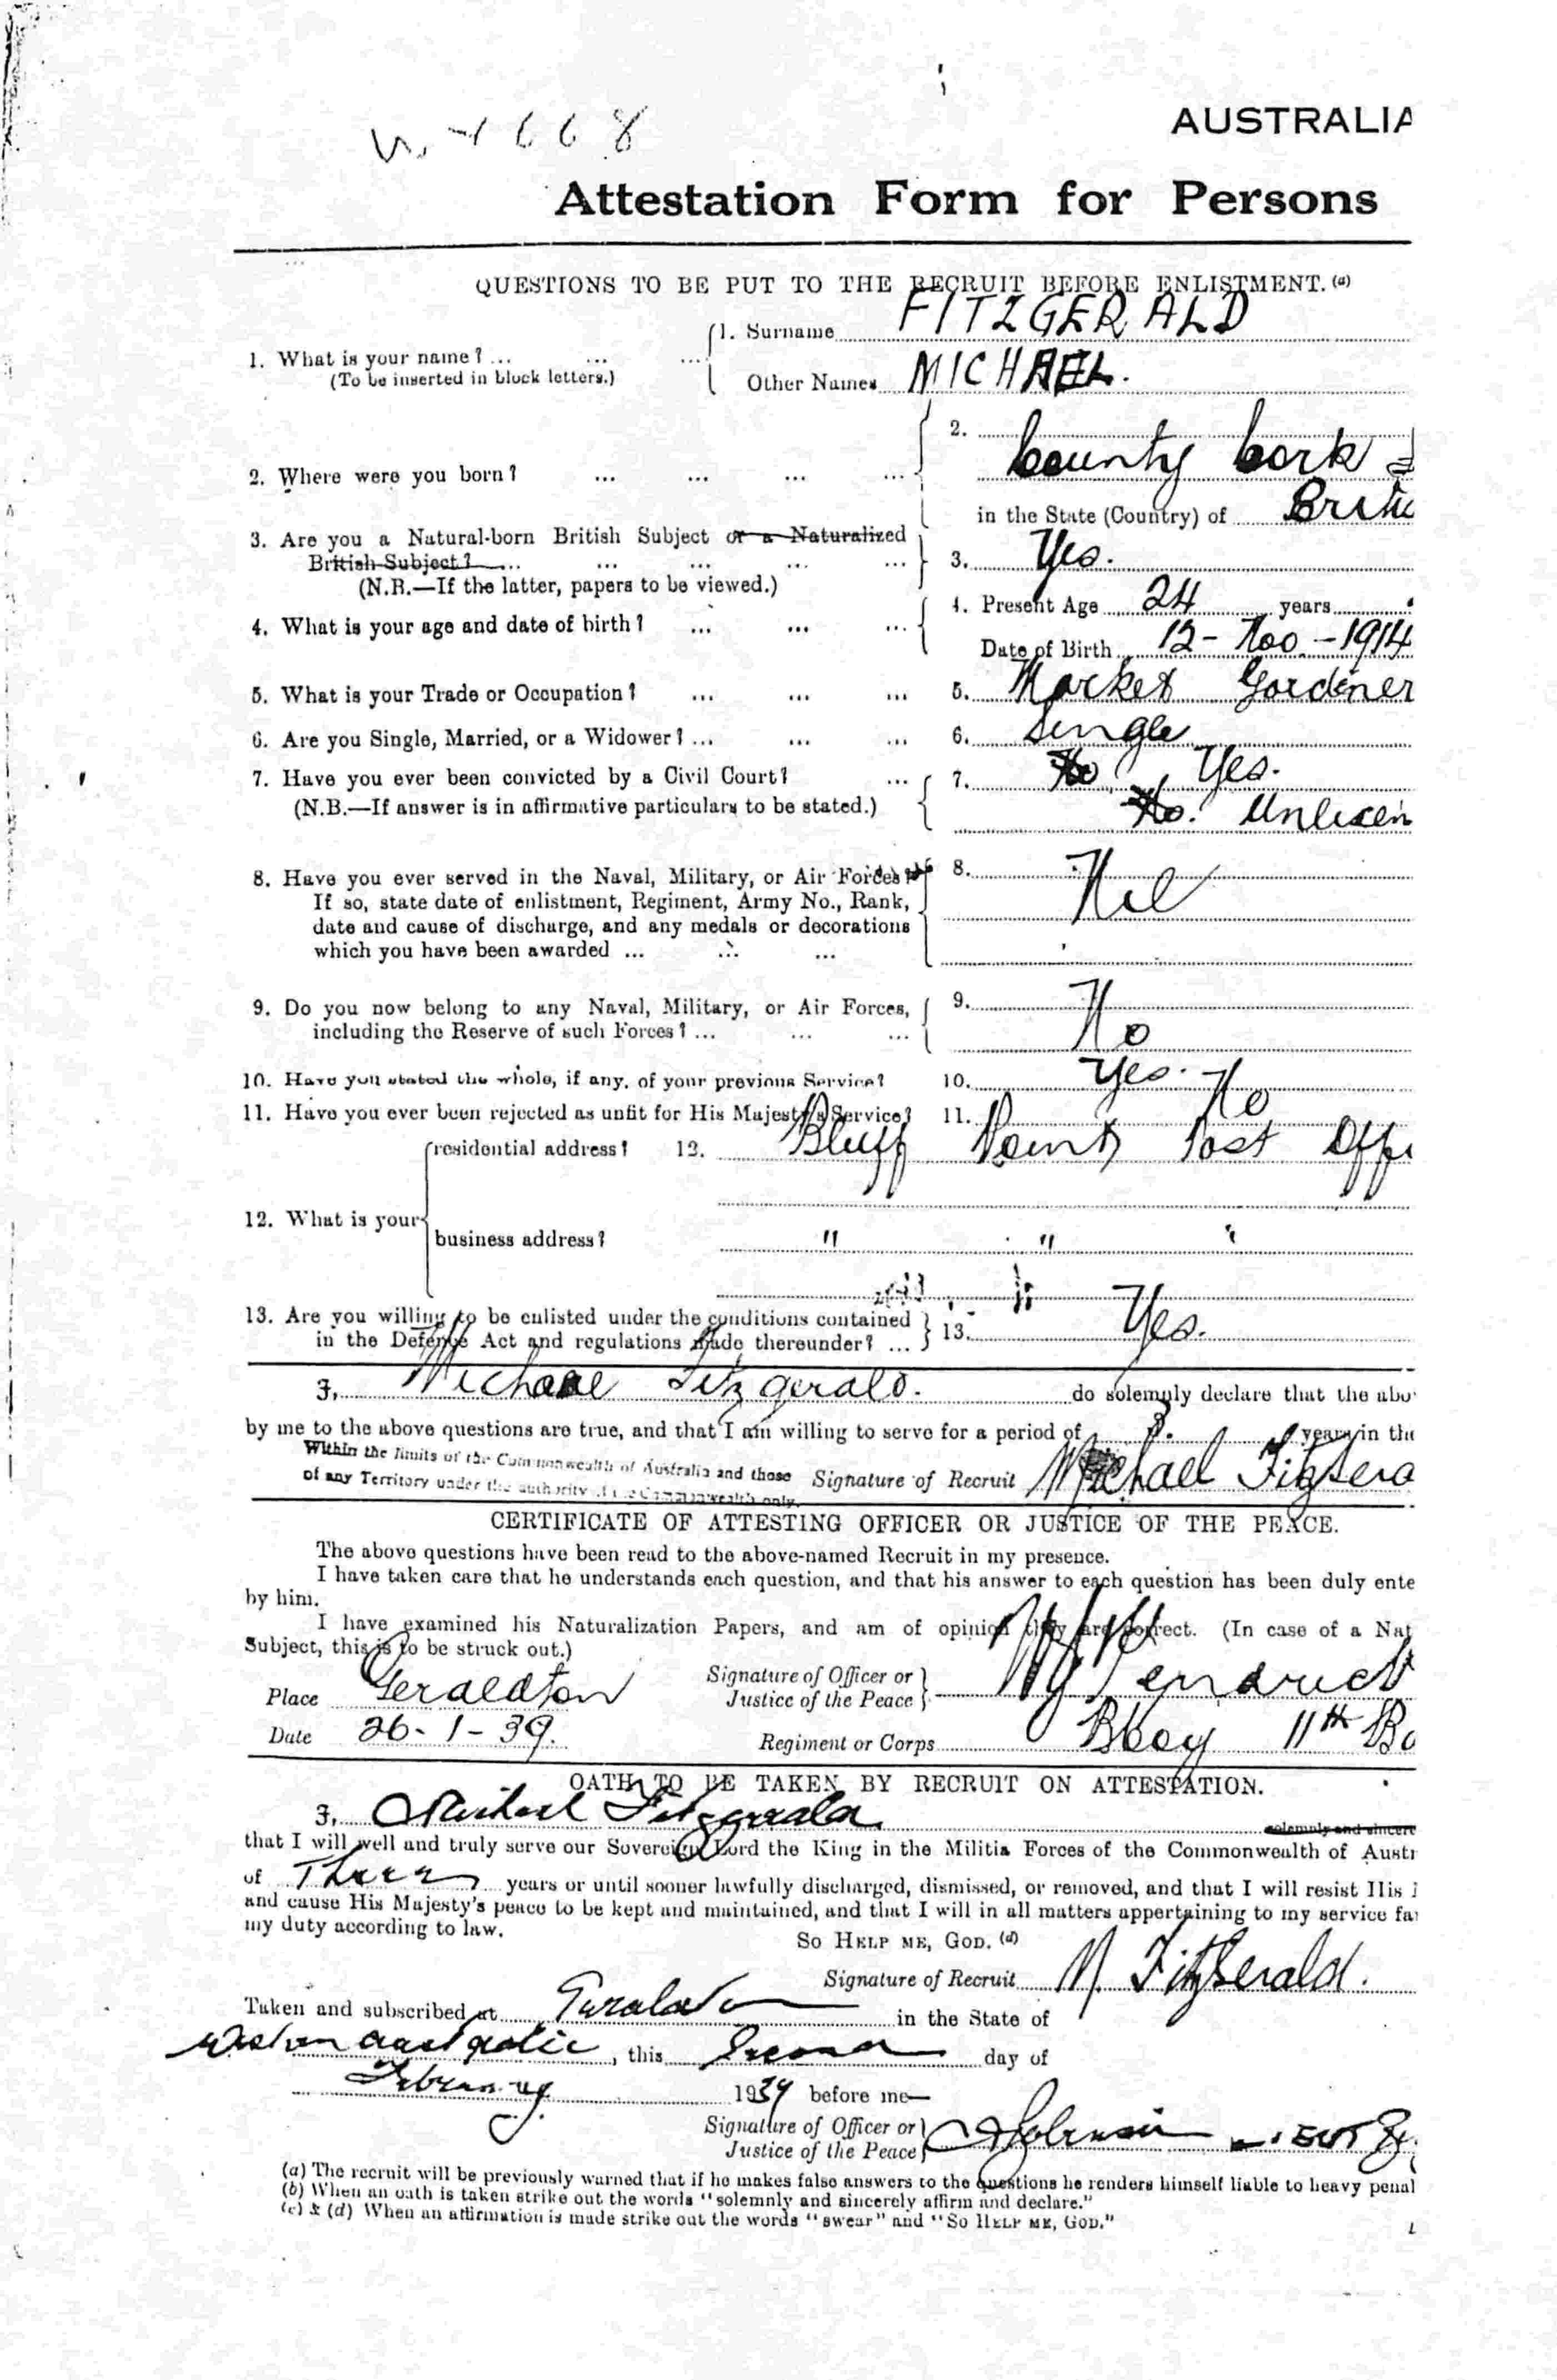 AUSTRALIA
Attestation Form for Persons
QUESTIONS TO BE PUT TO THE RECRUIT BEFORE ENLISTMENT. (a)
1. What is your name? ... ... ... 1. Surname FITZGERALD
(To be inserted in block letters.) Other Names MICHAEL.
2. Where were you born? ... ... ... ... 2. County Cork
in the State (Country) of
3. Are you a Natural-born British Subject or a Naturalized
British Subject? ... ... ... ... ... 3. Yes.
(N.B.—If the latter, papers to be viewed.)
4. What is your age and date of birth? ... ... ... 4. Present Age 24 years
Date of Birth 12 - Nov - 1914
5. What is your Trade or Occupation? ... ... ... 5. Market Gardener
6. Are you Single, Married, or a Widower? ... ... ... 6. Single
7. Have you ever been convicted by a Civil Court? ... 7. No Yes.
(N.B.—If answer is in affirmative particulars to be stated.) No. Unlicen
8. Have you ever served in the Naval, Military, or Air Forces? 8. Nil
If so, state date of enlistment, Regiment, Army No., Rank,
date and cause of discharge, and any medals or decorations
which you have been awarded ... ... ...
9. Do you now belong to any Naval, Military, or Air Forces, 9. No
including the Reserve of such Forces? ... ... ...
10. Have you stated the whole, if any, of your previous Service? 10. Yes.
11. Have you ever been rejected as unfit for His Majesty's Service? 11. No
residential address? 12. Bluff Point Post Offi
12. What is your
business address? " " "
13. Are you willing to be enlisted under the conditions contained
in the Defence Act and regulations made thereunder? ... 13. Yes.
I, Michael Fitzgerald. do solemnly declare that the abo
by me to the above questions are true, and that I am willing to serve for a period of 3. years in the
Within the limits of the Commonwealth of Australia and those
of any Territory under the authority of the Commonwealth only. Signature of Recruit Michael FitzGera
CERTIFICATE OF ATTESTING OFFICER OR JUSTICE OF THE PEACE.
The above questions have been read to the above-named Recruit in my presence.
I have taken care that he understands each question, and that his answer to each question has been duly ente
by him.
I have examined his Naturalization Papers, and am of opinion they are correct. (In case of a Nat
Subject, this is to be struck out.)
Place Geraldton Signature of Officer or
Justice of the Peace
Date 26-1-39. Regiment or Corps B Coy 11th Ba
OATH TO BE TAKEN BY RECRUIT ON ATTESTATION.
I, Michael Fitzgerald solemnly and sincere
that I will well and truly serve our Sovereign Lord the King in the Militia Forces of the Commonwealth of Austr
of Three years or until sooner lawfully discharged, dismissed, or removed, and that I will resist His
and cause His Majesty's peace to be kept and maintained, and that I will in all matters appertaining to my service fai
my duty according to law.
SO HELP ME, GOD. (d)
Signature of Recruit M. FitzGerald.
Taken and subscribed at Geraldton in the State of
Western Australia, this Second day of
February 1939 before me—
Signature of Officer or
Justice of the Peace
(a) The recruit will be previously warned that if he makes false answers to the questions he renders himself liable to heavy penal
(b) When an oath is taken strike out the words "solemnly and sincerely affirm and declare."
(c) & (d) When an affirmation is made strike out the words "swear" and "SO HELP ME, GOD."